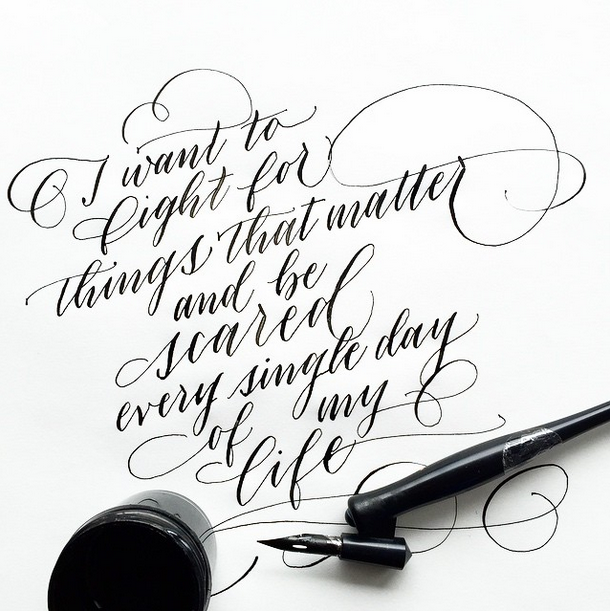 I want to
fight for
things that matter
and be
scared
every single day
of my
life